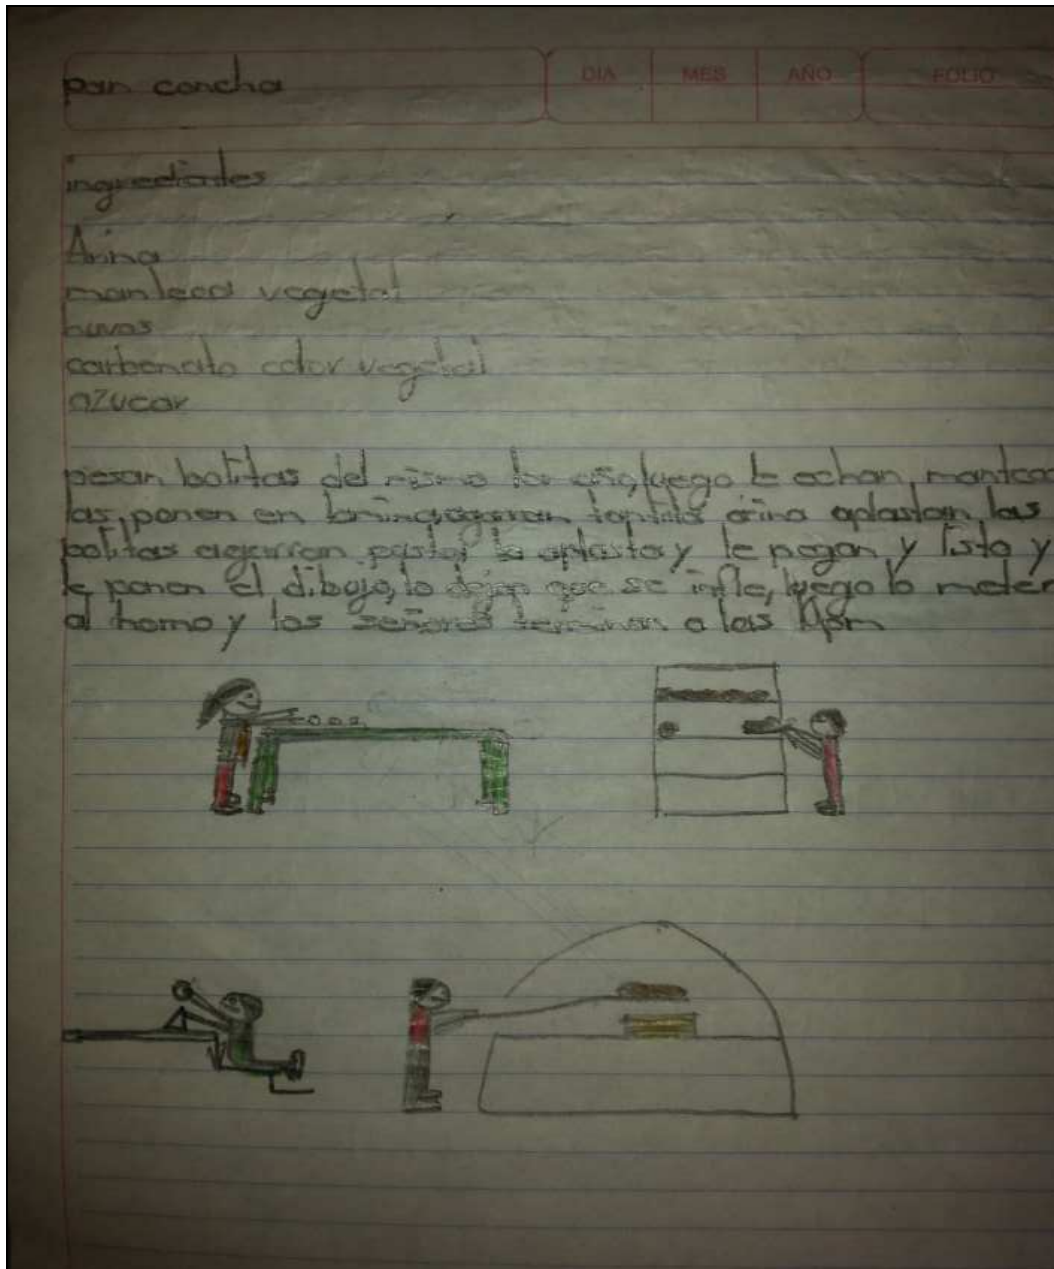 pan concha
DIA MES AÑO FOLIO
ingredientes
Arina
manteca vegetal
uvos
carbonato color vegetal
azucar
pesan bolitas del mismo tamaño, luego le echan, manteca
las, ponen en lamina, agarran tantita arina aplastan las
bolitas agarran pasta, la aplasta y le pegan y listo y
le ponen el dibujo, lo dejan que se infle, luego lo meten
al horno y los señores terminan a las pm